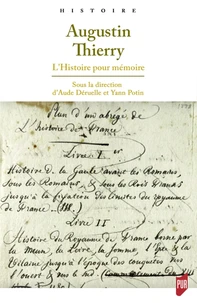 HISTOIRE
Augustin
Thierry
L'Histoire pour mémoire
Sous la direction
d'Aude Déruelle et Yann Potin
Plan d'un abrégé de
L'histoire de France
Livre Ier
Histoire de la Gaule avant les Romains,
sous les Romains, & sous les Rois Francs
jusqu'à la fixation des limites du royaume
de France
Livre II
Histoire du Royaume de France borné par
la Meuse, la Loire, la Somme, l'Epte & la
Vilaine jusqu'à l'époque des conquêtes vers
l'ouest & vers le sud
PUR